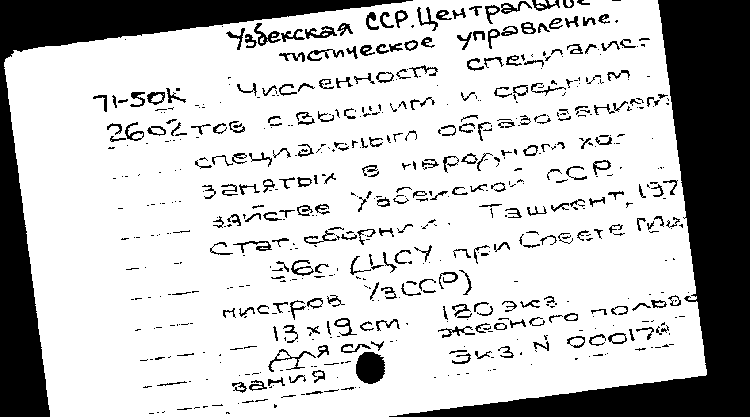 Узбекская ССР. Центральное
тистическое управление.
71-50К Численность специалис-
2602 тов с высшим и средним
специальным образованием
занятых в народном хо-
зяйстве Узбекской ССР.
Стат. сборник. Ташкент, 197
96с (ЦСУ при Совете Ми
нистров УзССР)
13 х 19 cm. 180 экз.
Для слу жебного пользо
вания Экз. N 00017